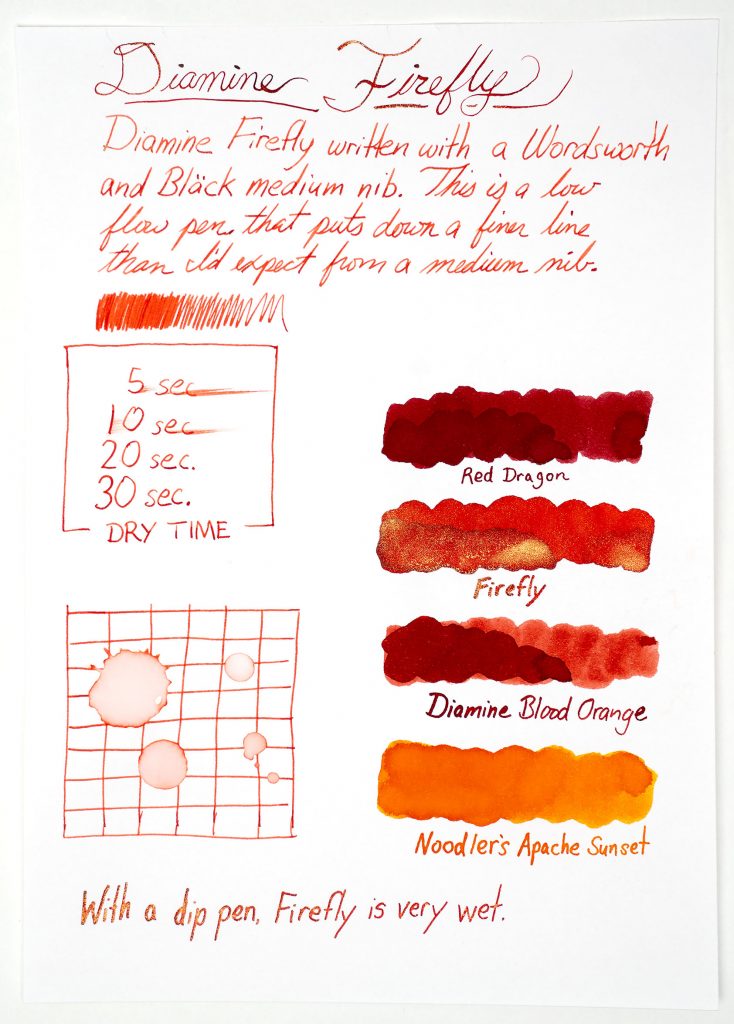 Diamine Firefly
Diamine Firefly written with a Wordsworth
and Bläck medium nib. This is a low
flow pen that puts down a finer line
than I'd expect from a medium nib.
5 sec
10 sec
20 sec.
30 sec.
DRY TIME
Red Dragon
Firefly
Diamine Blood Orange
Noodler's Apache Sunset
With a dip pen, Firefly is very wet.